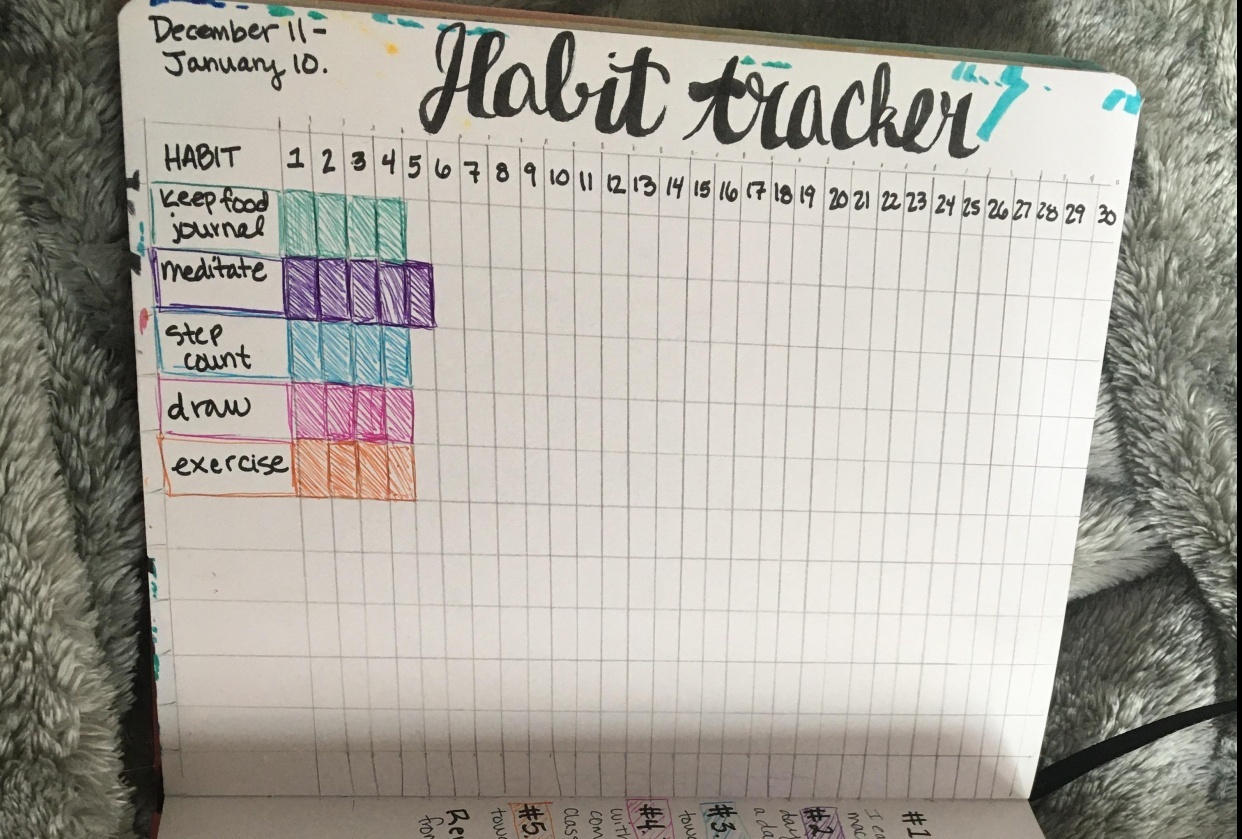 December 11 -
January 10.
Habit tracker
HABIT 1 2 3 4 5 6 7 8 9 10 11 12 13 14 15 16 17 18 19 20 21 22 23 24 25 26 27 28 29 30
keep food
journal
meditate
step
count
draw
exercise
#1
#2
#3.
#4.
#5.